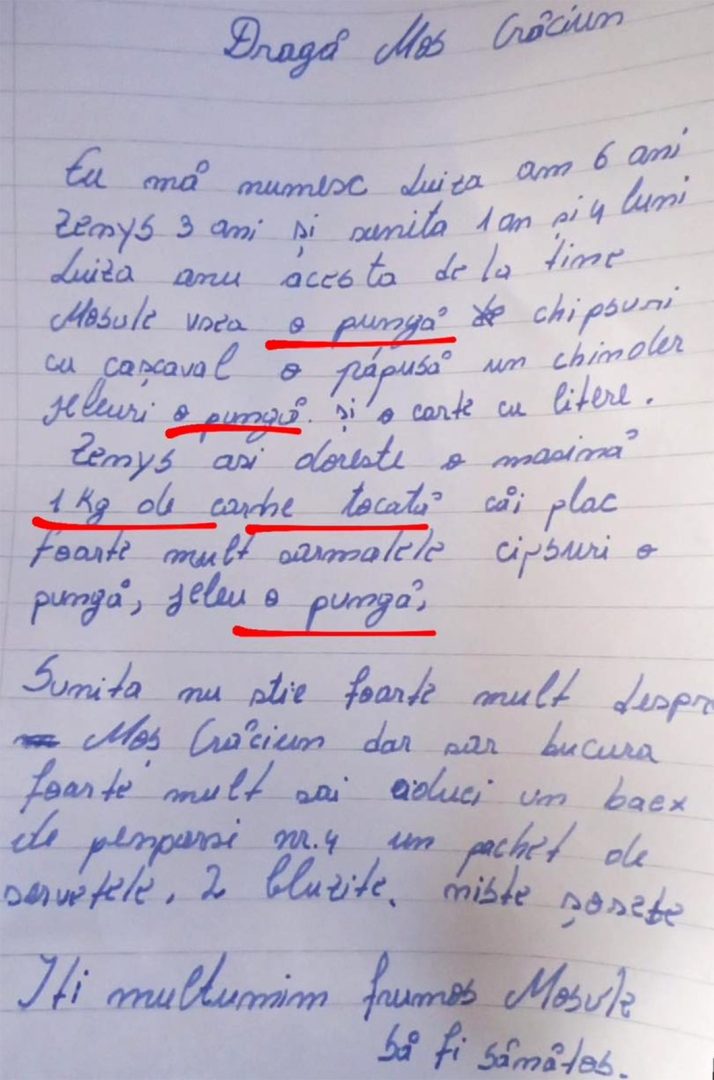 Dragă Mos Crăciun
Eu mă numesc Luiza am 6 ani
Zemys 3 ani și sunita 1 an și 4 luni
Luiza anu acesta de la tine
Mosule vrea o pungă de chipsuri
cu cașcaval o păpusă un chinder
jeleuri o pungă. și o carte cu litere.
Zemys asi doreste o masină
1 Kg de carne tocată căi plac
foarte mult sarmalele cipsuri o
pungă, jeleu o pungă,
Sunita nu stie foarte mult despr
Moș Crăciun dar sar bucura
foarte mult sai aduci un baex
de penparsi nr. 4 un pachet de
servetele, 2 bluzite, niste șosete
Iti multumim frumos Mosule
să fi sănătos.